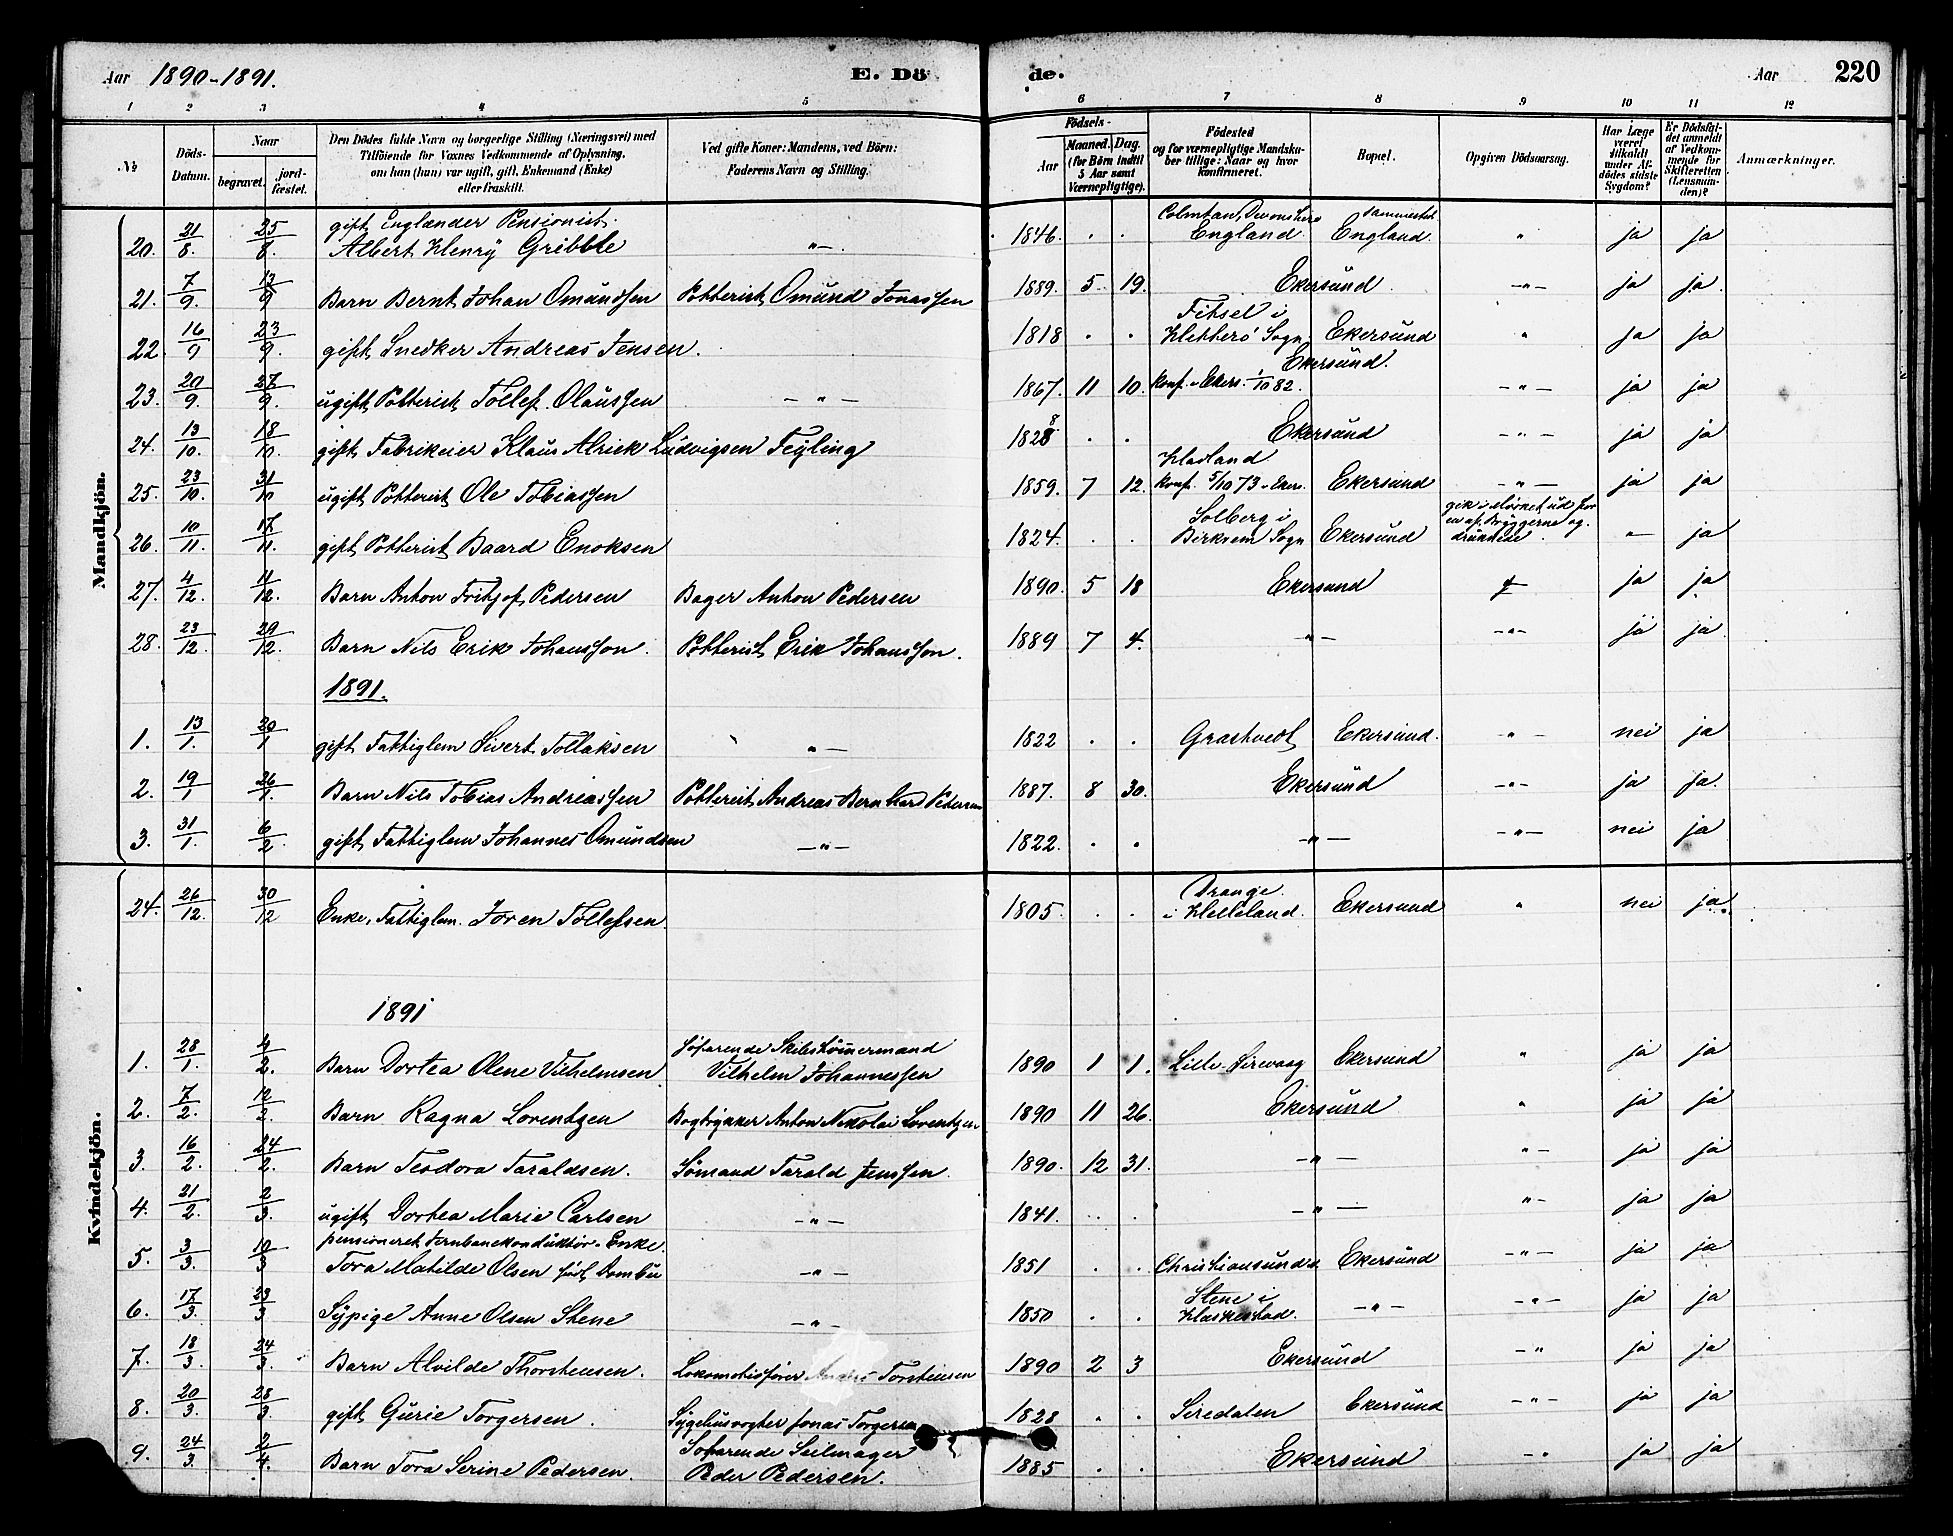 Aar 1890-1891. E. Dö de. Aar 220
1 2 3 4 5 6 7 8 9 10 11 12
No
Döds-Datum.
Naar
begravet.
jord-fæstet.
Den Dödes fulde Navn og borgerlige Stilling (Næringsvei) med
Tilföiende for Voxnes Vedkommende af Oplysning,
om han (hun) var ugift, gift, Enkemand (Enke)
eller fraskilt.
Ved gifte Koner: Mandens, ved Börn:
Faderens Navn og Stilling.
Födsels-
Aar
Maaned. Dag.
(for Börn indtil
5 Aar samt
Værnepligtige).
Födested
og for værnepligtige Mandska-
ber tillige: Naar og hvor
konfirmeret.
Bopæl.
Opgiven Dödsaarsag.
Har Læge
været
tilkaldt
under Af-
dödes sidste
Sygdom?
Er Dödsfal-
det anmeldt
af Vedkom-
mende for
Skifteretten
(Lensman-
den)?
Anmærkninger.
Mandkjön.
gift Englænder Pensionist. Devonshire sammested
20. 21/8. 25/8. Albert Henry Gribble "— 1846. . . England. England. " ja ja
21. 7/9. 13/9 Barn Bernt Johan Omundsen Potterist Omund Jonassen 1889. 5. 19. Ekersund. —"— ja ja
22. 16/9 23/9. gift Snedker Andreas Jensen. 1818 . . i Sogn Ekersund " ja ja
23. 20/9. 27/9. ugift Potterist Tollef Olaussen —"— 1867. 11 10. Konf. i Ekers. 1/10 82. Ekersund. —"— ja ja
24. 13/10. 18/10. gift Fabrikeier Klaus Alrick Ludvigsen Feyling 1828 . . Ekersund —"— ja ja
25. 23/10. 31/10 ugift Potterist Ole Tobiassen 1859. 7 12. Hadland Konf. 5/10 73 Ekersund —"— ja ja
26. 10/11. 17/11. gift Potterist Baard Enoksen 1824. . . Solberg i Birkrem Sogn Ekersund gik i Mörket ud for en af Bryggerne og druknede. — ja
27. 4/12. 11/12. Barn Anton Fritjof Pedersen Bager Anton Pedersen 1890. 5 18 Ekersund ja ja
28. 23/12. 29/12. Barn Nils Erik Johansson. Potterist Erik Johansson. 1889 7 4. —"— —"— ja ja
1891.
1. 13/1. 20/1 gift Fattiglem Sivert Tollaksen "— 1822 . . Grastvedt Ekersund. —"— nei ja
2. 19/1 26/1. Barn Nils Tobias Andreassen Potterist Andreas Bernhard Pedersen 1887. 8 30. Ekersund —"— ja ja.
3. 31/1. 6/2. gift Fattiglem Johannes Omundsen —"— 1822. . . —"— —"— nei ja
Kvindekjön.
24. 26/12. 30/12 Enke, Fattiglem. Joren Tollefsen. 1805. . . Drange i Helleland. Ekersund " nei ja.
1891
1. 28/1. 4/2. Barn Dortea Olene Vilhelmsen Söfarende Skibstömmermand Vilhelm Johannessen 1890 1 1. Lille Sirevaag Ekersund " ja ja
2. 7/2. 12/2. Barn Ragna Lorentzen Bogtrykker Anton Nikolai Lorentzen 1890 11 26. Ekersund " ja ja
3. 16/2. 24/2. Barn Teodora Taraldsen. Sömand Tarald Jenssen. 1890. 12 31. —"— "— ja ja
4. 21/2. 2/3. ugift Dortea Marie Carlsen —"— 1841. . . —"— "— ja ja
pensioneret Jernbanekonduktör-Enke.
5. 3/3. 10/3 Tora Matilde Olsen född Dombu —"— 1851 . . Christiansund Ekersund —"— ja ja
6. 17/3. 23/3 Sypige Anne Olsen Stene —"— 1850 . . Stene i Haskestad. —"— —"— ja ja
7. 18/3. 24/3. Barn Alvilde Thorstensen. Lokomotivförer Anders Torstensen 1890 2 3 Ekersund —" ja ja
8. 20/3. 28/3. gift Gurie Torgersen. Sygehusvogter Jonas Torgersen 1828 . . Siredalen Ekersund —"— ja ja
9. 24/3. 2/4. Barn Tora Serine Pedersen. Söfarende Seilmager Peder Pedersen. 1885 . . Ekersund —" ja ja